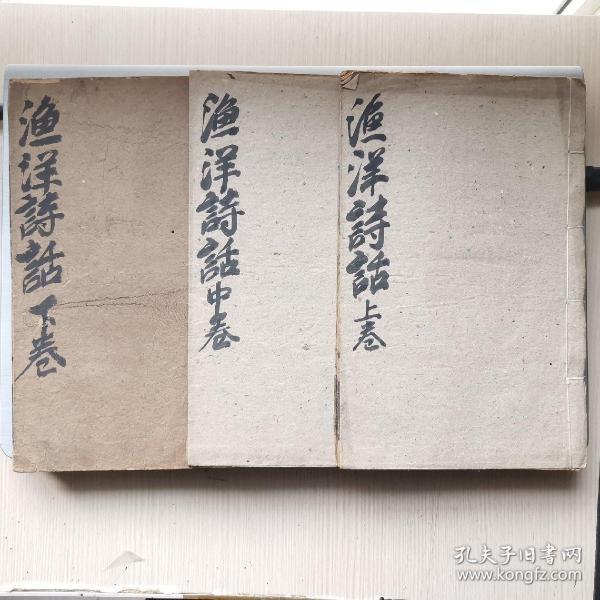 漁洋詩話上卷
漁洋詩話中卷
漁洋詩話下卷
孔夫子旧书网
www.kongfz.com